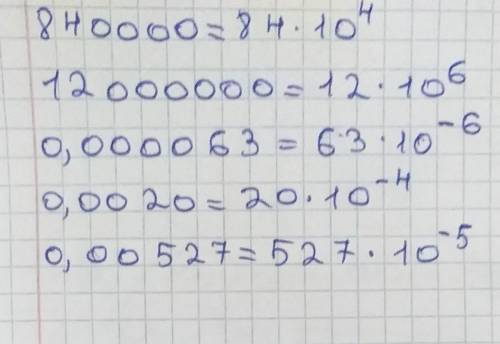 840000 = 84 · 10⁴
12000000 = 12 · 10⁶
0,000063 = 63 · 10⁻⁶
0,0020 = 20 · 10⁻⁴
0,00527 = 527 · 10⁻⁵